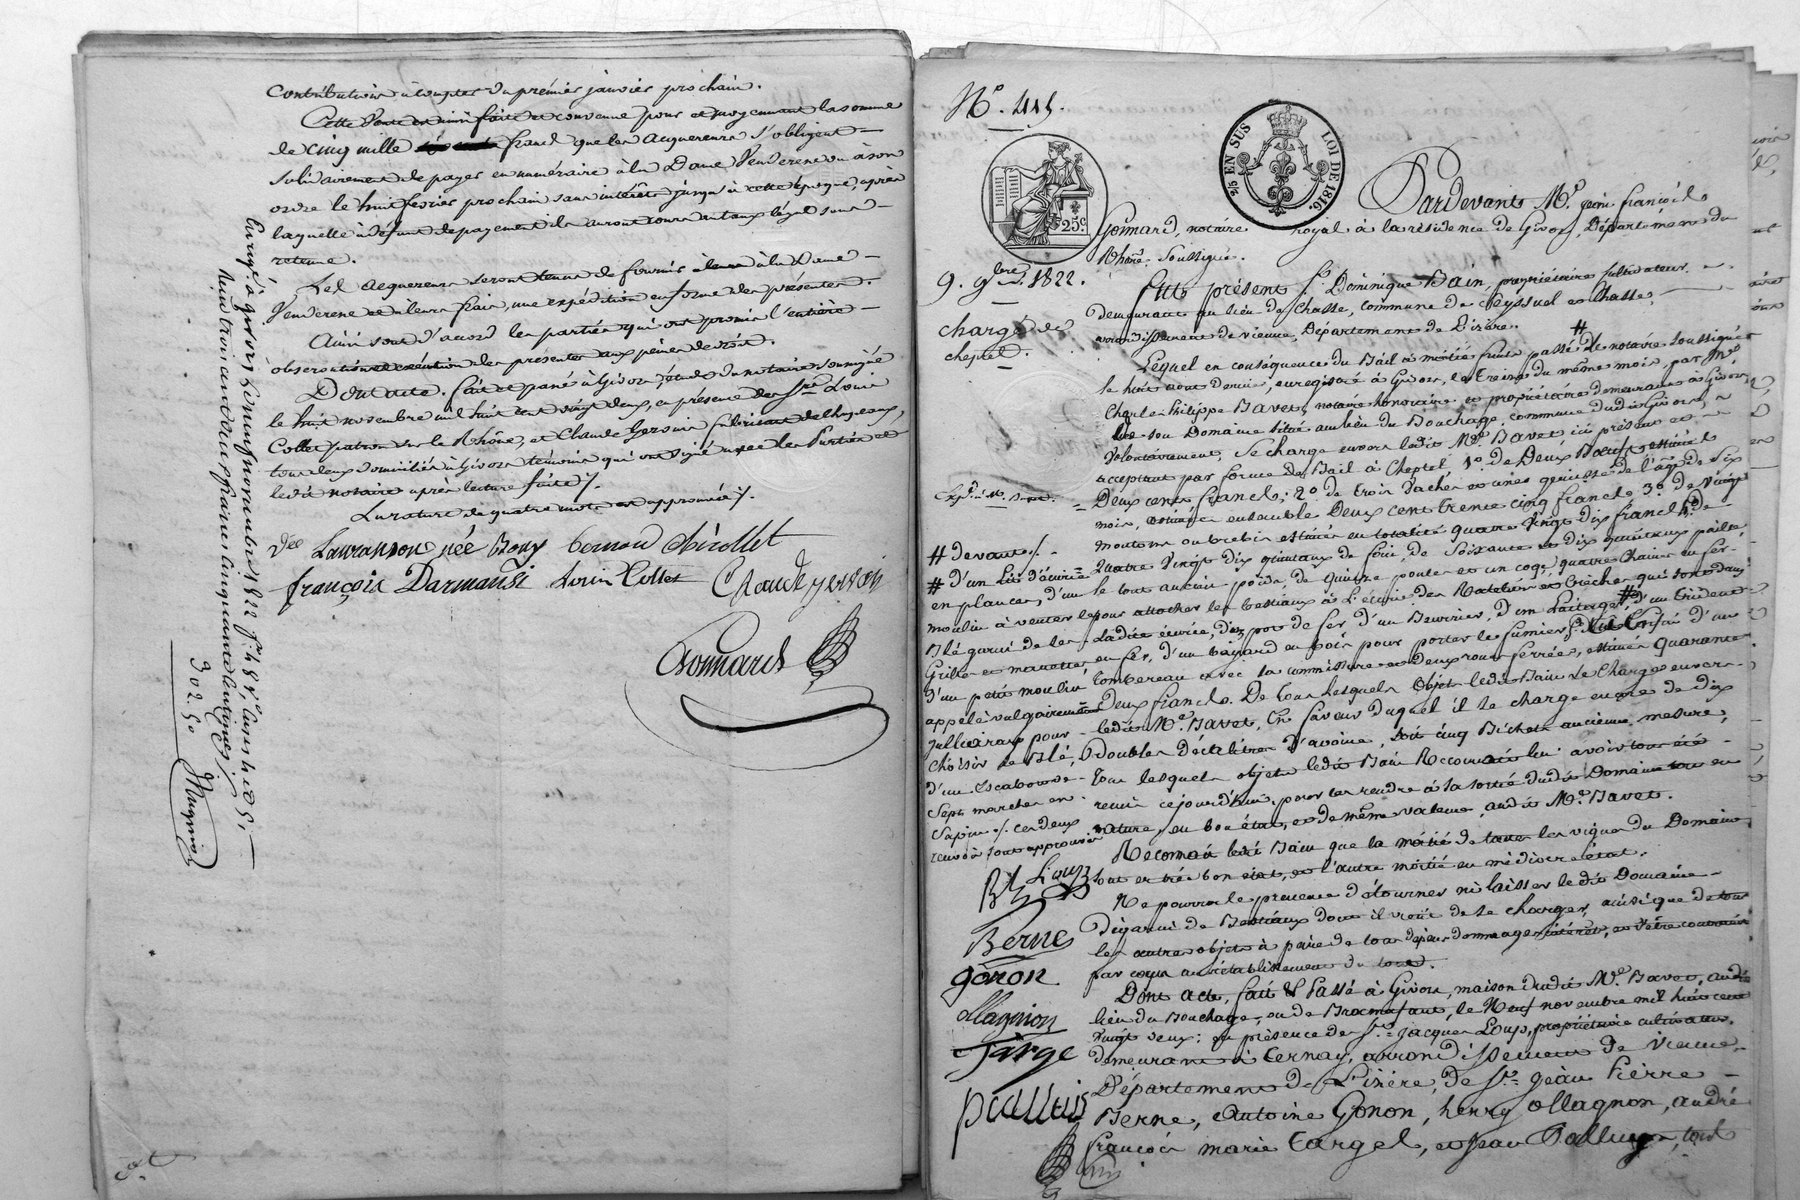 contributions à compter du premier janvier prochain.
Cette vente est ainsi faite et convenue pour et moyennant la somme
de cinq mille francs que les acquereurs s'obligent
solidairement de payer en numéraire à la Dame Venderese ou à son
ordre le huit fevrier prochain sans intérêts jusqu'à cette époque, après
laquelle à défaut de payement ils auront cours au taux légal sans
retenue.
Les acquereurs seront tenus de fournir à la Dame
Venderese et à leurs frais, une expédition en forme des présentes.
Ainsi sont d'acord les parties qui ont promis l'entière
observation et exécution des presentes aux peines de droit.
Dont acte. fait et passé à Givors étude du notaire soussigné
le huit novembre mil huit cent vingt deux, en présence des Srs Louis
Collet patron sur le Rhône, et Claude Gervais fabricant de chapeaux,
tous deux domiciliés à Givors témoins qui ont signé avec les parties et
ledit notaire après lecture faite ./.
La rature de quatre mots est approuvée ./.
née Roux
françois Darmansi Louis Collet Claude gervais
Gonnard
Enregé à givors le neuf novembre 1822
Reçu trois cent deux francs cinquante centimes
302. 50
N°. 445.
2/5 EN SUS LOI DE 1816.
25c
9. 9bre 1822.
charge de
cheptel.
Pardevant Me. jean françois
Gonnard, notaire royal à la résidence de Givors, Département du
Rhône, soussigné.
fut présent Sr. Dominique Bain, propriétaire cultivateur
demeurant au lieu de Chasse, commune de Seyssuel et Chasse,
arrondissement de vienne, Département de l'isère.
Lequel en conséquence du Bail à moitié fruits passé # le notaire soussigné
le huit aout dernier, enregistré à Givors, le treize du même mois, par Me.
Charles Philippe Bavet, notaire honoraire, et propriétaire demeurant à Givors,
de son Domaine situé au lieu du Bouchage, commune dudit Givors,
Volontairement, se charge envers ledit Me. Bavet ici présent et
acceptant par forme de Bail à Cheptel, 1° de Deux Boeufs estimés
Deux cents francs; 2° de trois vaches et une genisse de l'âge de six
mois, estimées ensemble Deux cent trente cinq francs 3° de vingt
moutons ou brebis estimés en totalité quatre vingt dix francs 4° de
quatre vingt dix quintaux de foin, de soixante et dix quintaux paille,
le tout ancien poids, de quinze poules et un coq, quatre chaines en fer
pour attacher les bestiaux à l'écurie des Rateliers et crèches qui sont dans
ladite écurie, d'un pot de fer, d'un Beurrier, d'un Laitage # d'un trident
en fer, d'un bayard en bois pour porter le fumier, enfin d'un
tombereau avec sa et Deux roues ferrées, estimés quarante
Deux francs. De tous lesquels objets ledit Bain se charge envers
ledit Me. Bavet, En faveur duquel il se charge encore de dix
Doubles décalitres d'avoine, soit cinq Bichets ancienne mesure,
tous lesquels objets ledit Bain Reconnait lui avoir tous été
remis cejourd'hui, pour les rendre à la sortie dudit Domaine tous en
nature, en bon état, et de même valeur, audit Me. Bavet.
Reconnait ledit Bain que la moitié de toutes les vignes du Domaine
sont en très bon état, et l'autre moitié en médiocre état.
Ne pourra le preneur détourner ni laisser ledit Domaine
dégarni de Bestiaux dont il vient de se charger, ainsi que de tous
les autres objets à peine de tous dépens dommages intérêts, et d'être contraint
par corps au rétablissement du tout.
Dont acte, fait & Passé à Givors, maison dudit Me. Bavet, audit
lieu du Bouchage, ou de Bramafant, le Neuf novembre mil huit cent
vingt deux; en présence de Sr. jacques Loup, propriétaire cultivateur,
demeurant à Ternay, arrondissement de vienne,
Département de L'isère, de Sr. jean Pierre
Berne, Antoine Gonon, henry ollagnon, andré
françois marie targe, et jean Palluy, tous
# devant ./.
# d'un
en plances, d'un
moulin à venter le
Blé garni de les
Grilles et
d'un petit moulin
appelé vulgairement
pour
choisir le Blé,
d'un Escabou de
Sept marches en
Sapin ./. ces deux
renvois sont approuvés
B Loup
Berne
gonon
ollagnon
Targe
palluis